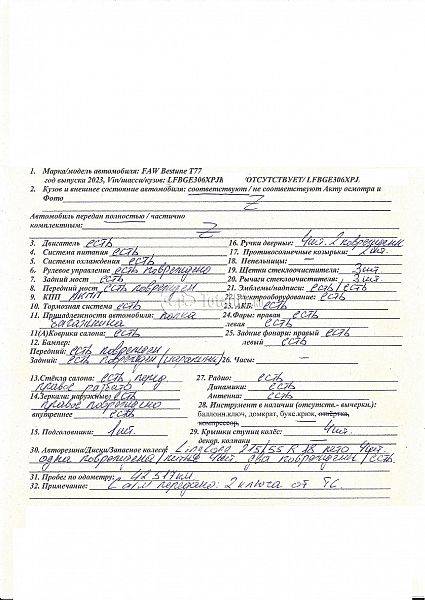 1. Марка/модель автомобиля: FAW Bestune T77
год выпуска 2023, Vin/шасси/кузов: LFBGE306XPJ /ОТСУТСТВУЕТ/ LFBGE306XPJ
2. Кузов и внешнее состояние автомобиля: соответствуют / не соответствуют Акту осмотра и
Фото
Автомобиль передан полностью / частично
комплектным:
3. Двигатель есть
4. Система питания есть
5. Система охлаждения есть
6. Рулевое управление есть повреждено
7. Задний мост есть
8. Передний мост есть поврежден
9. КПП АКПП
10. Тормозная система есть
11. Принадлежности автомобиля: полка
багажника
11(А)Коврики салона: есть
12. Бампер:
Передний: есть поврежден
Задний: есть поврежден (царапины)
13.Стёкла салона: есть, перед.
правое разбито
14.Зеркала: наружные: есть
правое повреждено
внутреннее есть
15. Подголовники: 4шт.
16. Ручки дверные: 4шт. 2 повреждены
17. Противосолнечные козырьки: 2шт.
18. Пепельницы: —
19. Щетки стеклоочистителя: 3шт.
20. Рычаги стеклоочистителя: 3шт.
21. Эмблемы/надписи: есть/есть
22. Электрооборудование: есть
23. АКБ: есть
24.Фары: правая есть
левая есть
25. Задние фонари: правый есть
левый есть
26. Часы: —
27. Радио: есть
Динамики: есть
Антенна: есть
28. Инструмент в наличии (отсутст.- вычеркн.):
баллонн.ключ, домкрат, букс.крюк, отвёртка,
компрессор.
29. Крышки ступиц колёс: 4шт.
декор. колпаки —
30. Авторезина/Диски/Запасное колесо: 215/55 R 18 лето 4шт.
одна повреждена/литые 4шт. два повреждены/есть.
31. Пробег по одометру: км.
32. Примечание: С а/м передано: 2 ключа от ТС.